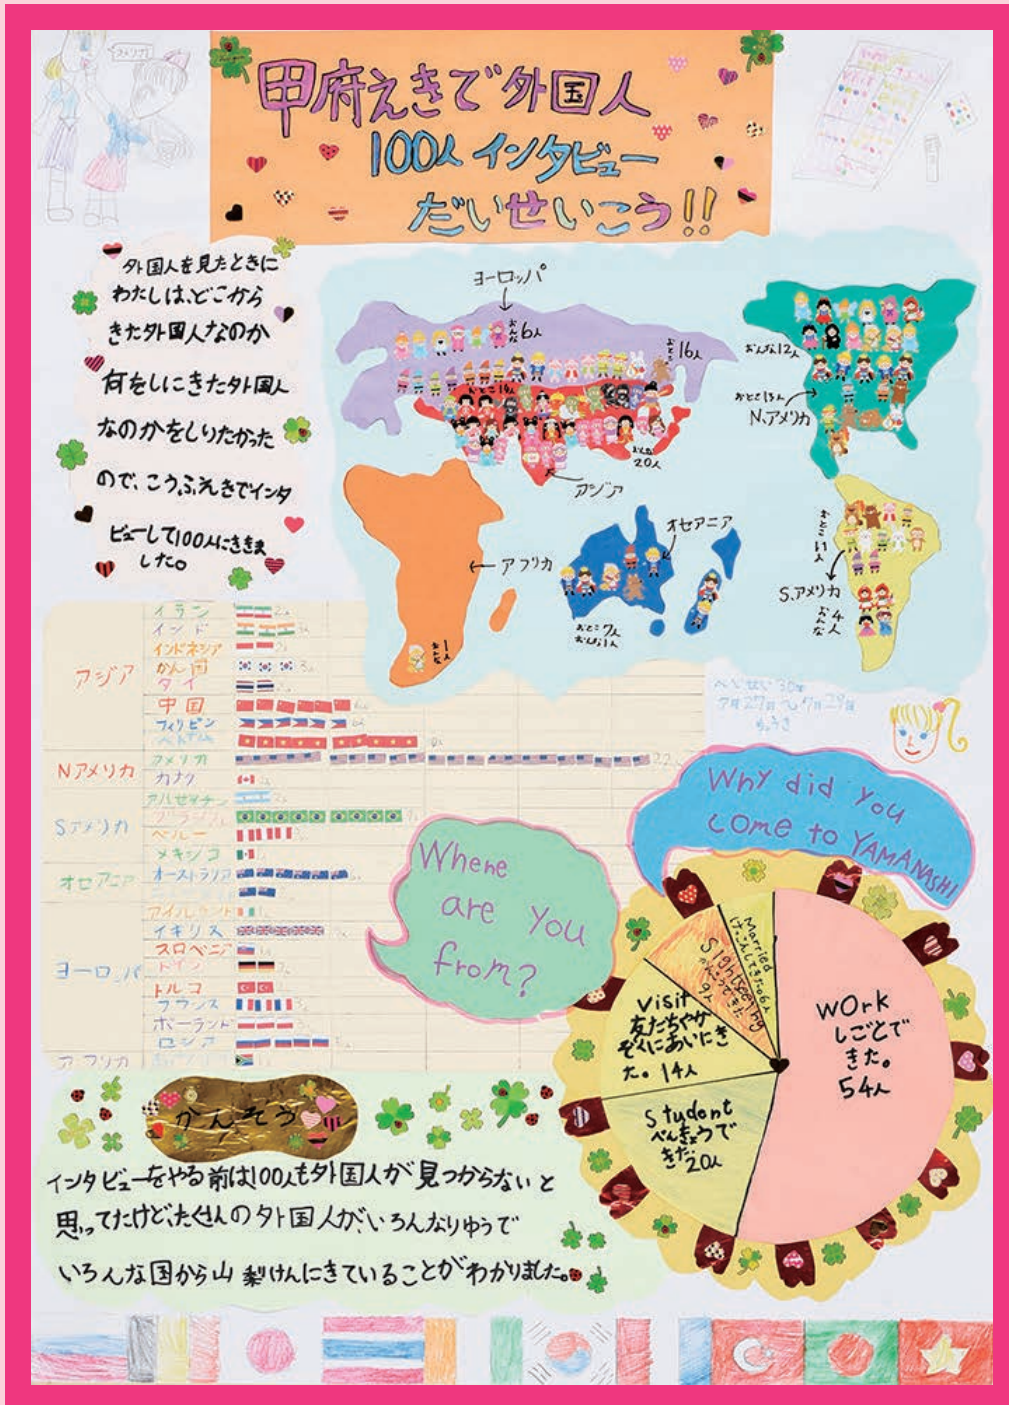 アメリカ
甲府えきで外国人
100人インタビュー
だいせいこう!!
外国人を見たときに
わたしは、どこから
きた外国人なのか
何をしにきた外国人
なのかをしりたかった
ので、こうふえきでインタ
ビューして100人にききま
した。
ヨーロッパ
おんな6人
おとこ16人
おとこ14人
おんな20人
アジア
おんな12人
おとこ13人
N.アメリカ
アフリカ
おんな1人
オセアニア
おとこ7人
おんな1人
おとこ11人
S.アメリカ
おんな4人
へいせい30年
7月27日~7月29日
アジア
イラン 2人
インド 3人
インドネシア 2人
かん国 3人
タイ 2人
中国
フィリピン
Nアメリカ
アメリカ
カナダ
Sアメリカ
アルゼンチン
ブラジル
ペルー
メキシコ
オセアニア
オーストラリア
ヨーロッパ
アイルランド
イギリス
スロベニア
ドイツ
トルコ
フランス
ポーランド
ロシア
アフリカ
Where
are you
from?
Why did you
come to YAMANASHI
Work
しごとで
きた。
54人
Student
べんきょうで
きた
20人
Visit
友だちやか
ぞくにあいにき
た。14人
Sightseeing
かんこうできた
9人
Married
けっこんしてきた
かんそう
インタビューをやる前は100人も外国人が見つからないと
思ってたけど、たくさんの外国人が、いろんなりゆうで
いろんな国から山梨けんにきていることがわかりました。